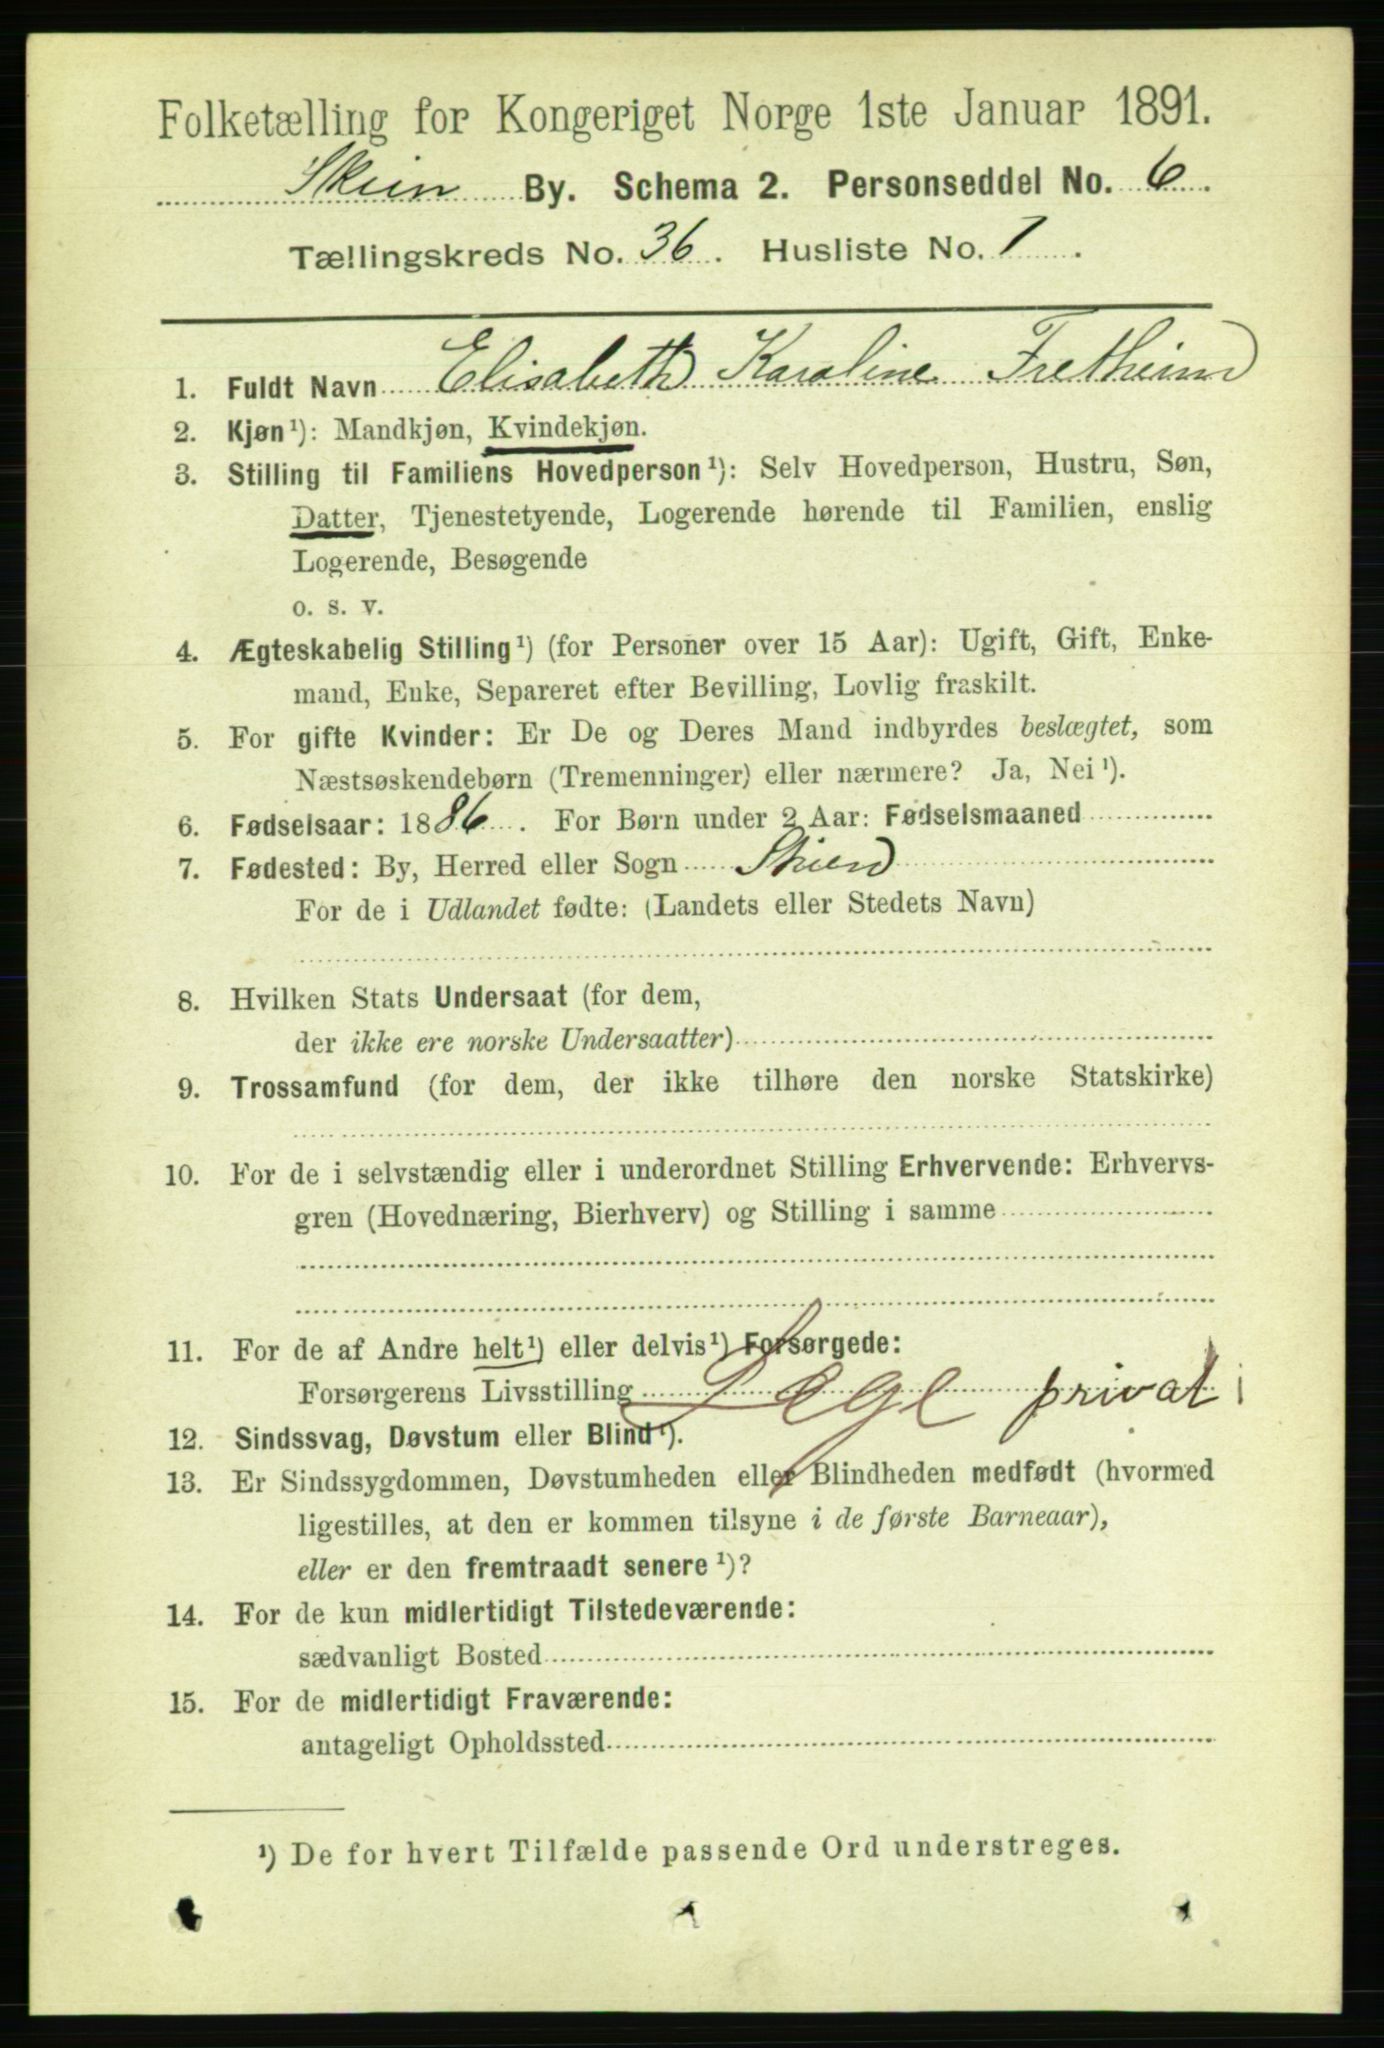 Folketælling for Kongeriget Norge 1ste Januar 1891.
Skien By. Schema 2. Personseddel No. 6.
Tællingskreds No. 36. Husliste No. 1.
1. Fuldt Navn Elisabeth Karoline Fretheim
2. Kjøn¹): Mandkjøn, Kvindekjøn.
3. Stilling til Familiens Hovedperson¹): Selv Hovedperson, Hustru, Søn,
Datter, Tjenestetyende, Logerende hørende til Familien, enslig
Logerende, Besøgende
o. s. v.
4. Ægteskabelig Stilling¹) (for Personer over 15 Aar): Ugift, Gift, Enke-
mand, Enke, Separeret efter Bevilling, Lovlig fraskilt.
5. For gifte Kvinder: Er De og Deres Mand indbyrdes beslægtet, som
Næstsøskendebørn (Tremenninger) eller nærmere? Ja, Nei¹).
6. Fødselsaar: 1886. For Børn under 2 Aar: Fødselsmaaned
7. Fødested: By, Herred eller Sogn Skien
For de i Udlandet fødte: (Landets eller Stedets Navn)
8. Hvilken Stats Undersaat (for dem,
der ikke ere norske Undersaatter)
9. Trossamfund (for dem, der ikke tilhøre den norske Statskirke)
10. For de i selvstændig eller i underordnet Stilling Erhvervende: Erhvervs-
gren (Hovednæring, Bierhverv) og Stilling i samme
11. For de af Andre helt¹) eller delvis¹) Forsørgede:
Forsørgerens Livsstilling Læge privat
12. Sindssvag, Døvstum eller Blind¹).
13. Er Sindssygdommen, Døvstumheden eller Blindheden medfødt (hvormed
ligestilles, at den er kommen tilsyne i de første Barneaar),
eller er den fremtraadt senere¹)?
14. For de kun midlertidigt Tilstedeværende:
sædvanligt Bosted
15. For de midlertidigt Fraværende:
antageligt Opholdssted
¹) De for hvert Tilfælde passende Ord understreges.